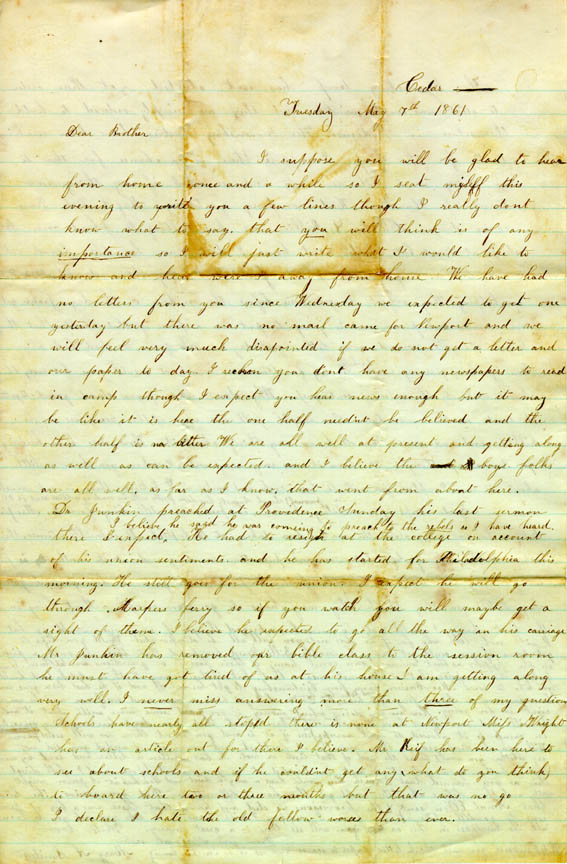 Cedar
Tuesday May 7th 1861
Dear Brother
I suppose you will be glad to hear
from home once and a while so I seat myself this
evening to write you a few lines though I really dont
know what to say that you will think is of any
importance so I will just write what I would like to
know and hear were I away from home We have had
no letters from you since Wednesday we expected to get one
yesterday but there was no mail came for Newport and we
will feel very much disapointed if we do not get a letter and
our paper to day. I reckon you dont have any newspapers to read
in camp though I expect you hear news enough but it may
be like it is hear the one half neednt be believed and the
other half is no better We are all well at present and getting along
as well as can be expected. and I believe the boys folks
are all well, as far as I know, that went from about here.
Dr Junkin preached at Providence Sunday his last sermon
I believe, he said he was coming to preach to the rebels as I have heard.
there I expect, He had to resign at the college on account
of his union sentiments. and he has started for Philadelphia this
morning. He still goes for the union. I expect he will go
through Harpers ferry so if you watch you will maybe get a
sight of them. I believe he expected to go all the way in his carriage
Mr Junkin has removed our bible class to the session room
he must have got tired of us at his house. I am getting along
very well. I never miss answering more than three of my questions
Schools have nearly all stopd there is none at Newport Miss Wright
has an article out for there I believe. Mr has been here to
see about schools and if he couldnt get any, what do you think,
to board here two or three months but that was no go
I declare I hate the old fellow worses than ever.